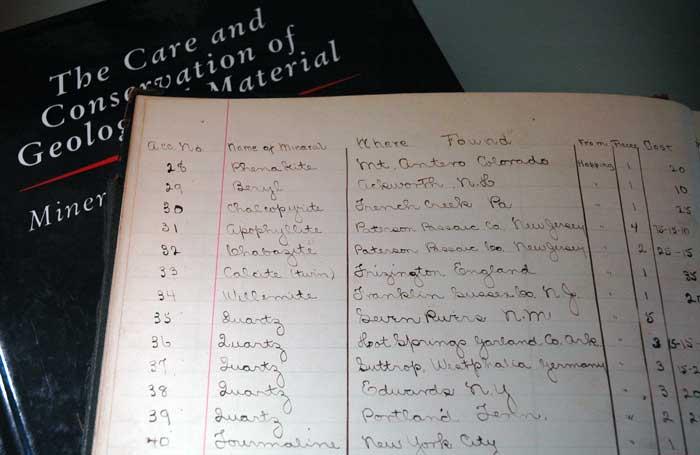 The Care and
Conservation of
Geolog Material
Miner
Acc. No. Name of Mineral Where Found From Pieces Cost
28 Phenakite Mt. Antero Colorado Hopping 1 20
29 Beryl Ackworth N.H " 1 10
30 Chalcopyrite French Creek Pa " 1 25
31 Apophyllite Paterson Passaic Co. New Jersey " 4 75-15-10
32 Chabazite Paterson Passaic Co. New Jersey " 2 25-15
33 Calcite (twin) Frizington England " 1 35
34 Willemite Franklin Sussex Co. N.J. " 1 2
35 Quartz Seven Rivers N.M " 5
36 Quartz Hot Springs Garland Co. Ark " 3 15-15-
37 Quartz Suttrop, Westphalia Germany " 3 15-2
38 Quartz Edwards N.Y " 3 20
39 Quartz Portland Tenn. " 2 2
40 Tourmaline New York City " 1